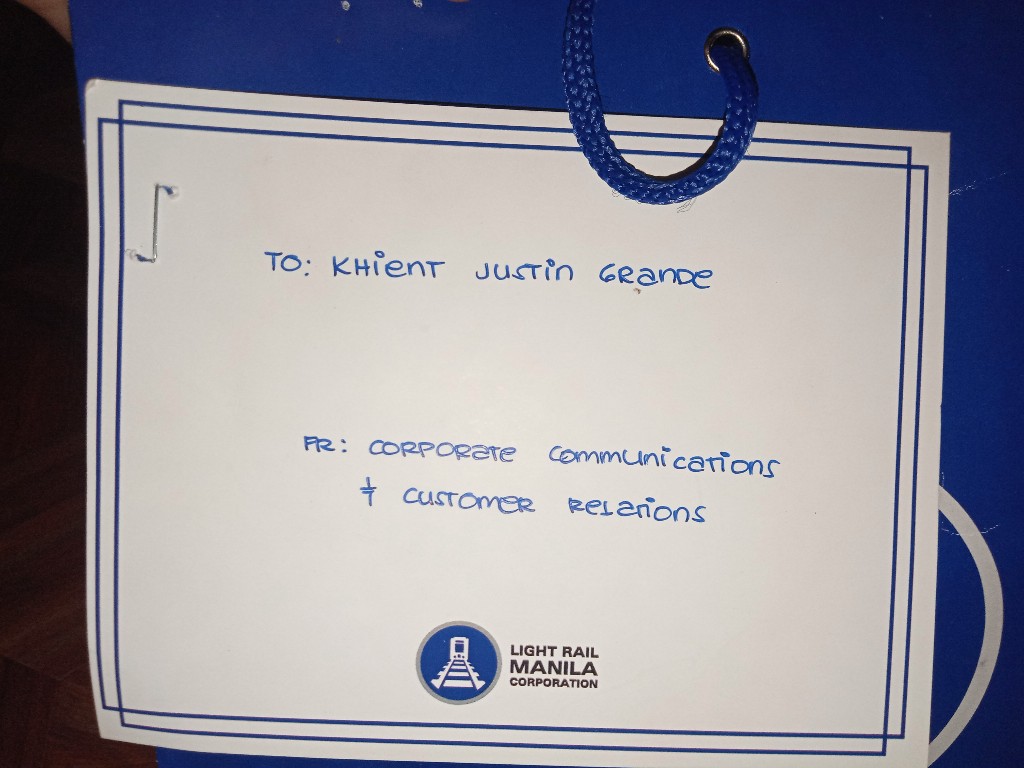 TO: KHIENT JUSTIN GRANDE
FR: CORPORATE COMMUNICATIONS
& CUSTOMER RELATIONS
LIGHT RAIL
MANILA
CORPORATION